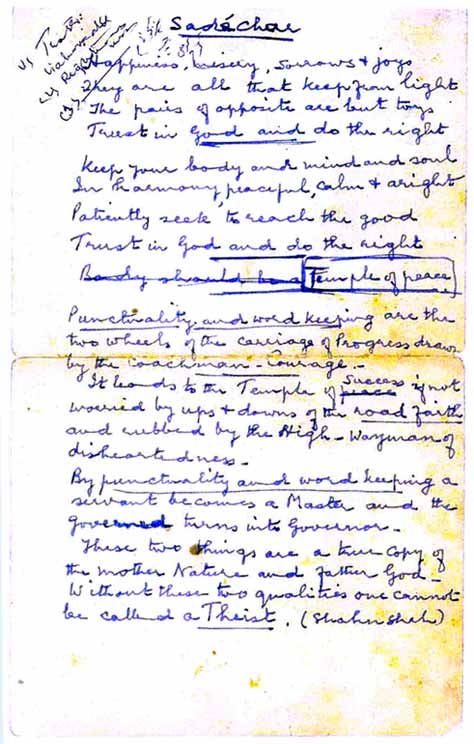 Sadáchar
Happiness, Misery, sorrows & joys
They are all that keep from light
The pairs of opposite are but toys
Trust in God and do the right
Keep your body and mind and soul
In harmony, peaceful, calm & aright
Patiently seek to reach the good
Trust in God and do the right
Body should be a Temple of peace
Punctuality and word keeping are the
two wheels of the carriage of Progress drawn
by the coachman - Courage. -
It leads to the Temple of peace Success if not
worried by ups & downs of the road faith
and rubbed by the High-wayman of
disheartedness -
By punctuality and word keeping a
servant becomes a Master and the
governed turns into Governor -
These two things are a true copy of
the mother Nature and father God -
Without these two qualities one cannot
be called a Theist. (Shahn Shah)